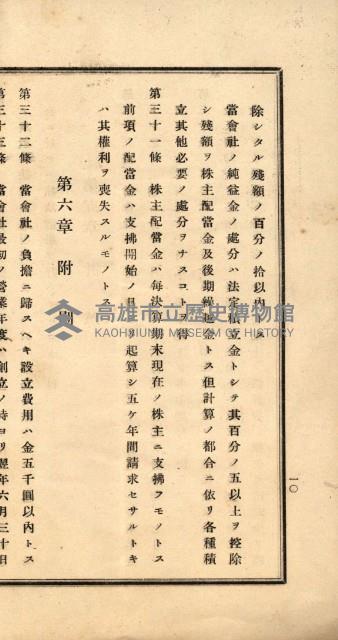 除シタル殘額ノ百分ノ拾以內トス
當會社ノ純益金ノ處分ハ法定積立金トシテ其百分ノ五以上ヲ控除
シ殘額ヲ株主配當金及後期繰越金トス但計算ノ都合ニ依リ各種積
立其他必要ノ處分ヲナスコトヲ得
第三十一條 株主配當金ハ每決算期末現在ノ株主ニ支拂フモノトス
前項ノ配當金ハ支拂開始ノ日ヨリ起算シ五ケ年間請求セサルトキ
ハ其權利ヲ喪失スルモノトス
第六章 附則
第三十二條 當會社ノ負擔ニ歸スヘキ設立費用ハ金五千圓以內トス
第三十三條 當會社最初ノ營業年度ハ創立ノ時ヨリ翌年六月三十日
一〇
高雄市立歷史博物館
KAOHSIUNG MUSEUM OF HISTORY